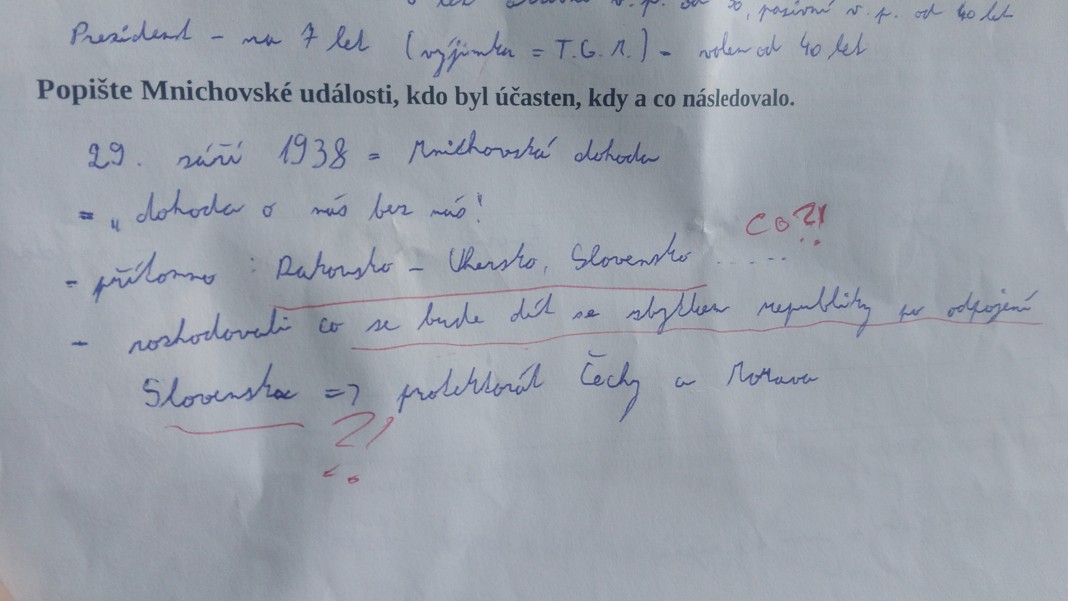 v. p. od 30, pasivní v. p. od 40 let
Prezident - na 7 let (výjimka = T.G.M.) - volen od 40 let
Popište Mnichovské události, kdo byl účasten, kdy a co následovalo.
29. září 1938 = Mnichovská dohoda
= „dohoda o nás bez nás!
CO?!
- přítomno : Rakousko - Uhersko, Slovensko ......
- rozhodovali co se bude dít se zbytkem republiky po odpojení
Slovenska => protektorát Čechy a Morava
?!